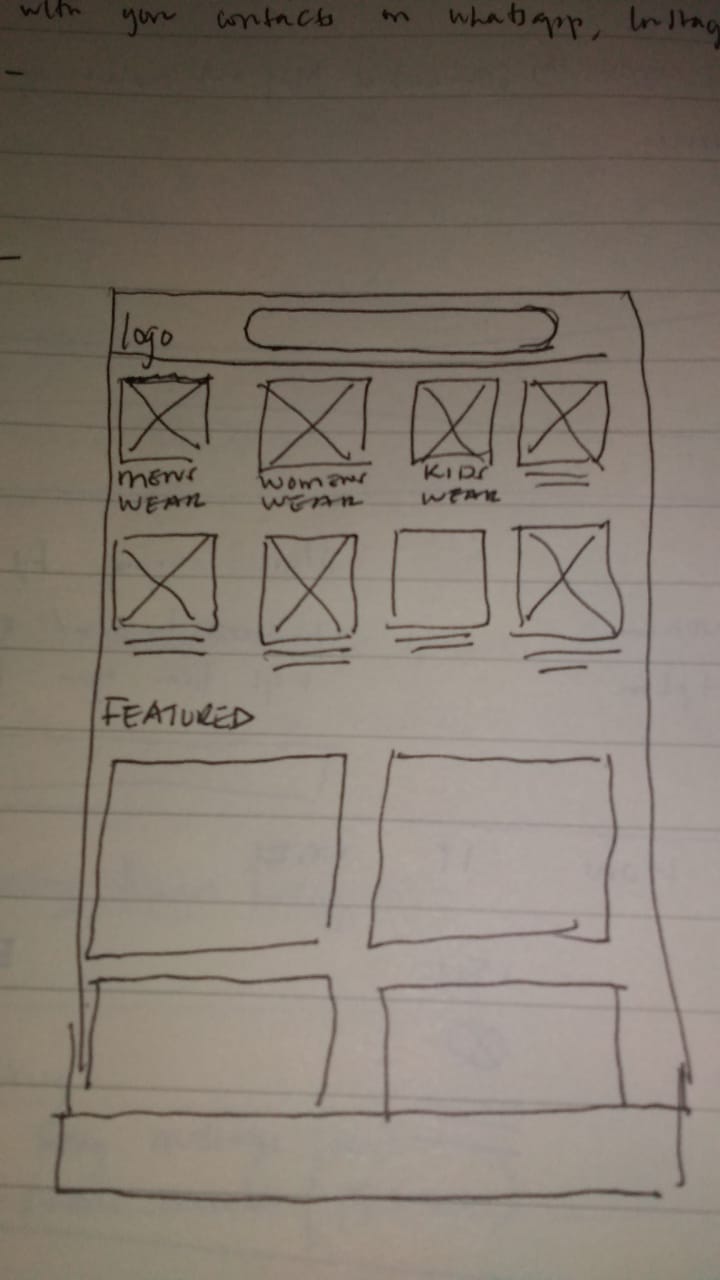 with your contacts on whatsapp, Instag
logo
MENS
WEAR
WOMENS
WEAR
KIDS
WEAR
FEATURED